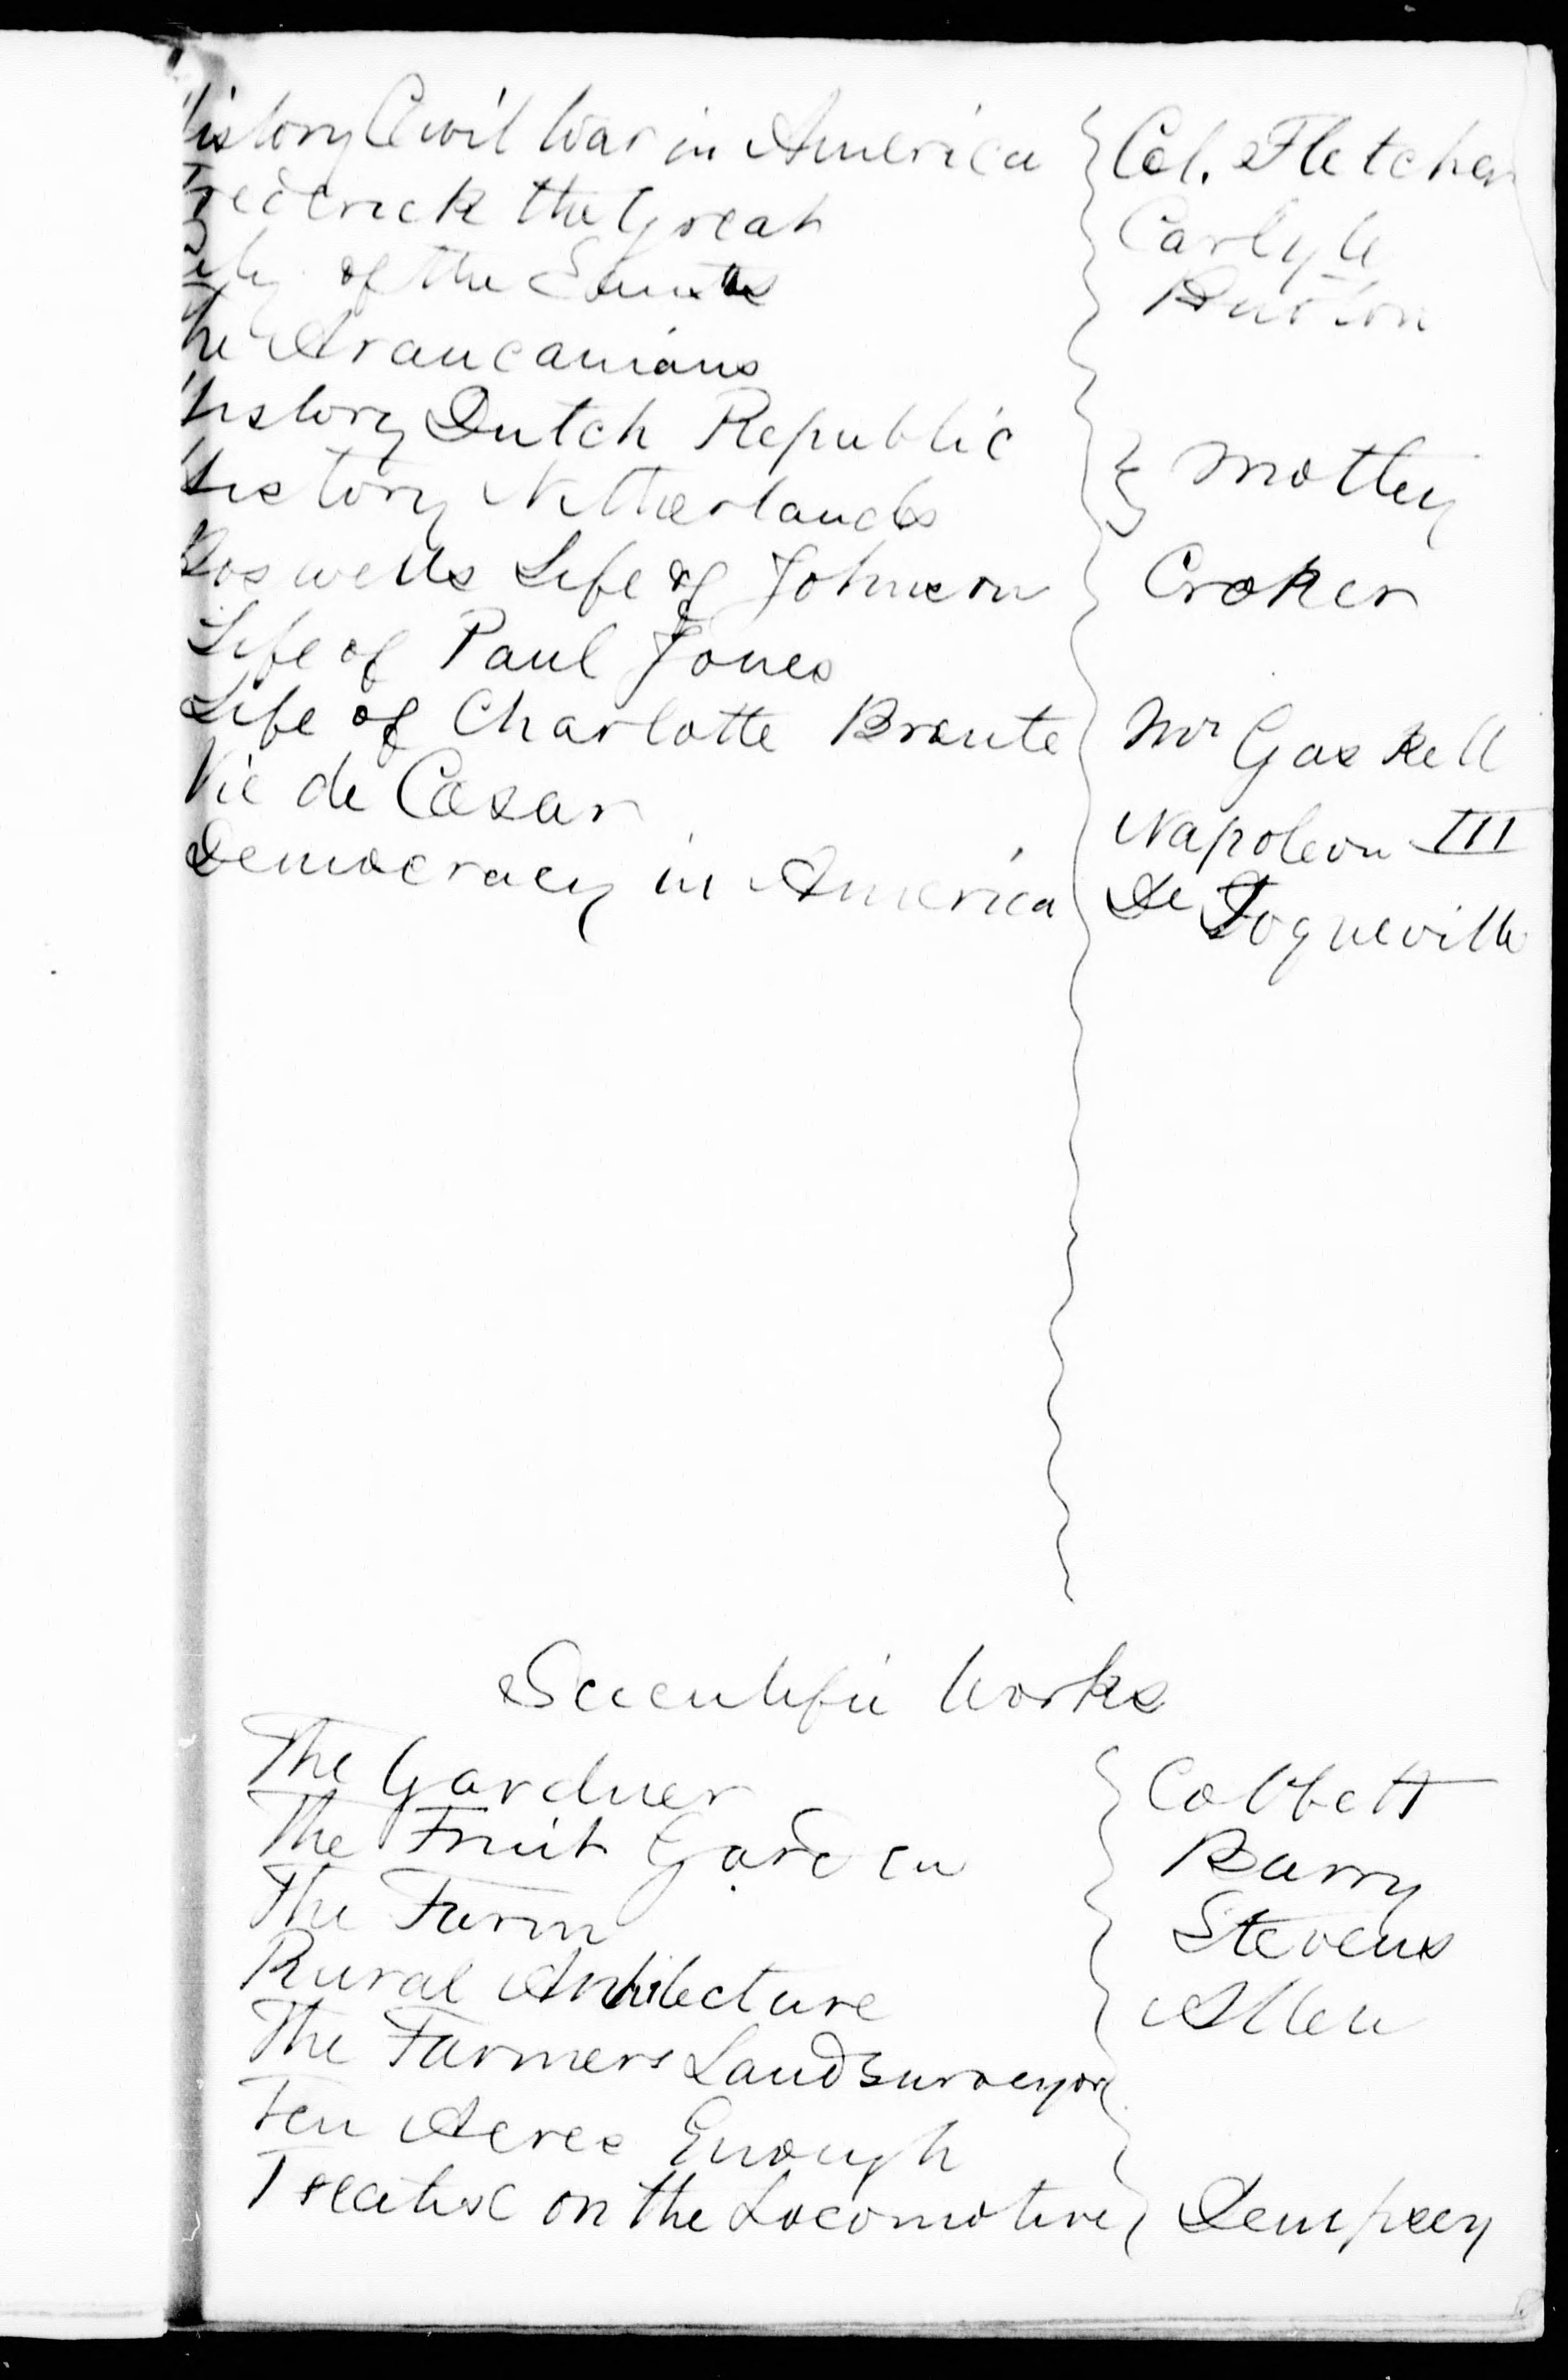 History Civil War in America Col. Fletcher
Frederick the Great Carlyle
City of the Saints Burton
The Araucanians
History Dutch Republic
History Netherlands Motley
Boswells Life of Johnson Croker
Life of Paul Jones
Life of Charlotte Bronte Mrs Gaskell
Vie de Cæsar Napoleon III
Democracy in America De Toqueville
Scientific Works
The Gardner Cobbett
The Fruit Garden Barry
The Farm Stevens
Rural Architecture Allen
The Farmers Landsurveyor
Ten Acres Enough
Treatise on the Locomotive Dempsey